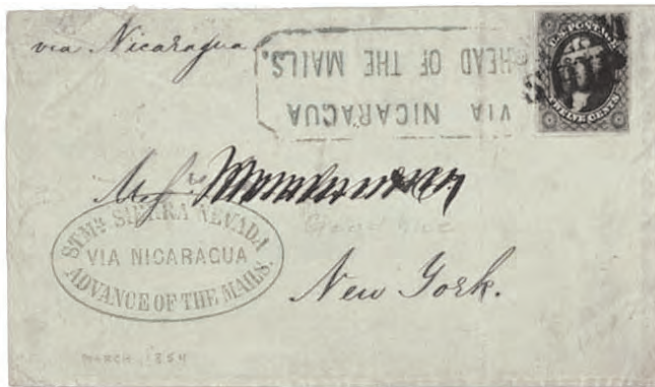 via Nicaragua
VIA NICARAGUA
AHEAD OF THE MAILS.
U.S. POSTAGE
TWELVE CENTS
STMR. SIERRA NEVADA
VIA NICARAGUA
ADVANCE OF THE MAILS.
New York.
MARCH 1854